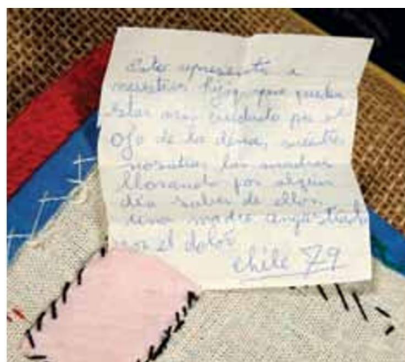 Esto representa a
nuestros hijos que pueden
estar asi, cubierto por el
Ojo de la dina, mientras
nosotras las madres
llorando por algun
dia saber de ellos.
una madre angustiada
por el dolor
chile 79